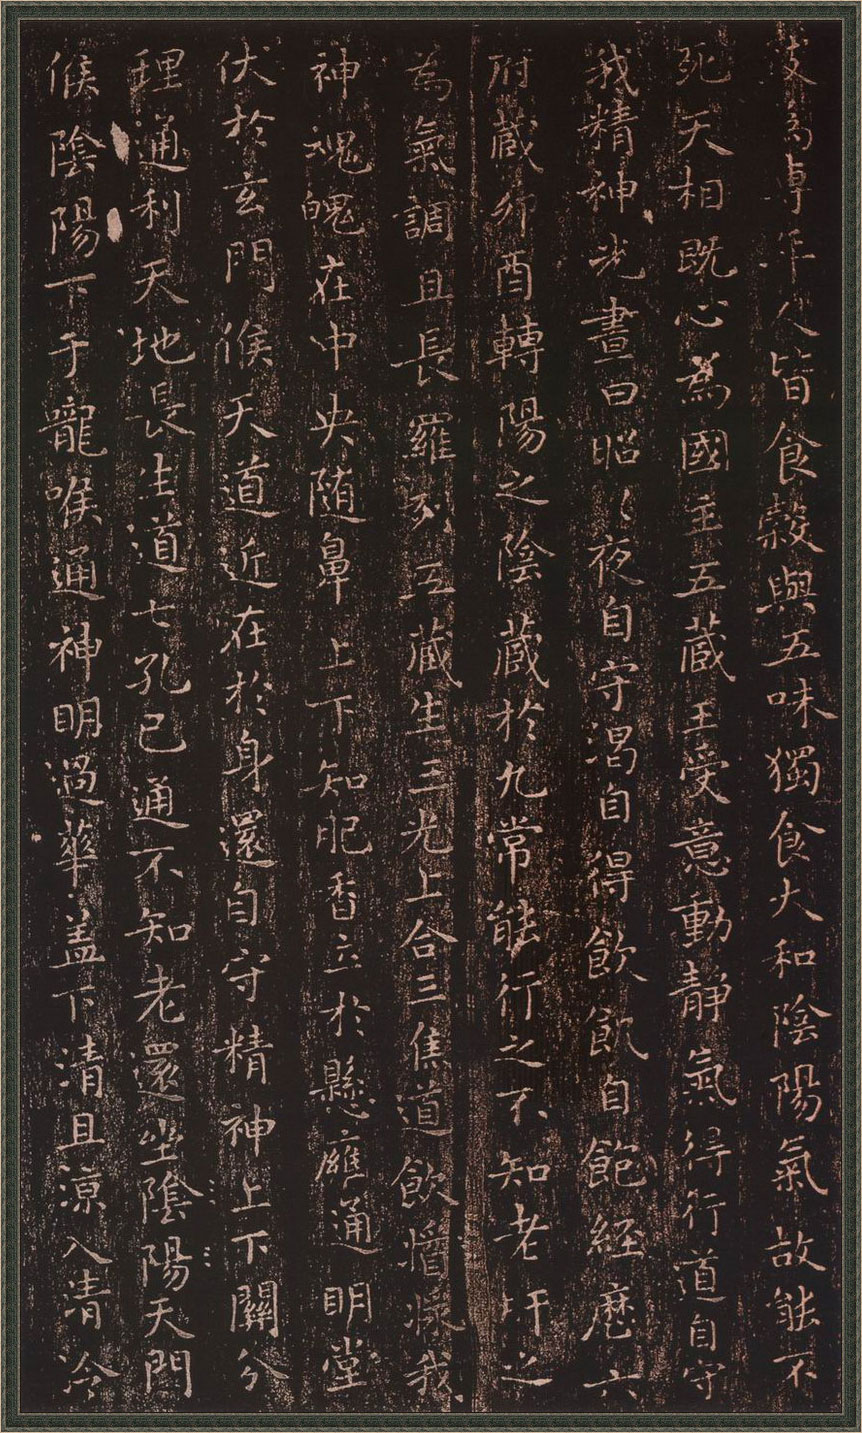 致為專年人皆食穀與五味獨食大和陰陽氣故能不
死天相既心為國主五藏王受意動靜氣得行道自守
我精神光晝日昭〻夜自守渴自得飲飢自飽經歷六
府藏卯酉轉陽之陰藏於九常能行之不知老肝之
為氣調且長羅列五藏生三光上合三焦道飲醬漿我
神魂魄在中央随鼻上下知肥香立於懸膺通明堂
伏於玄門候天道近在於身還自守精神上下關分
理通利天地長生道七孔已通不知老還坐陰陽天門
候陰陽下于嚨喉通神明過華盖下清且涼入清冷